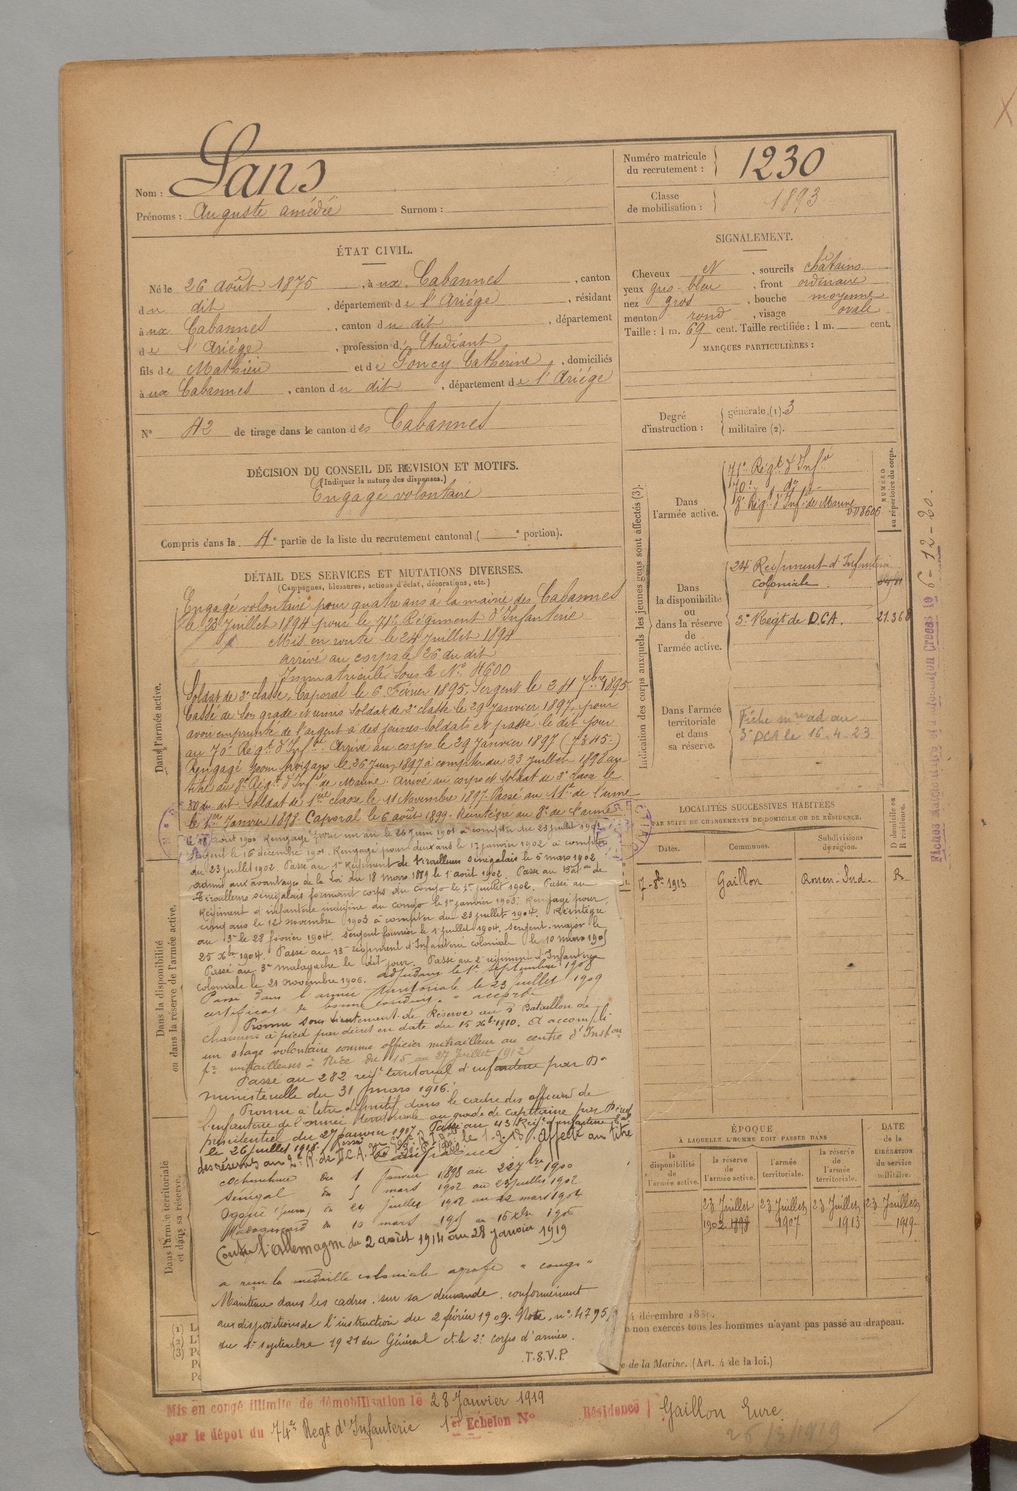 Nom : Sans
Prénoms : Auguste Amédée Surnom :
Numéro matricule du recrutement : 1230
Classe de mobilisation : 1893
ÉTAT CIVIL.
Né le 26 août 1875, à ux Cabannes, canton
du dit, département de l'Ariége, résidant
à ux Cabannes, canton du dit, département
de l'Ariége, profession d' Etudiant
fils de Mathieu et de Goncy Catherine, domiciliés
à ux Cabannes, canton du dit, département de l'Ariége
N° 42 de tirage dans le canton des Cabannes
SIGNALEMENT.
Cheveux N, sourcils châtains
yeux gris-bleu, front ordinaire
nez gros, bouche moyenne
menton rond, visage ovale
Taille : 1 m. 69 cent. Taille rectifiée : 1 m. cent.
MARQUES PARTICULIÈRES :
Degré d'instruction : générale (1). 3
militaire (2).
DÉCISION DU CONSEIL DE REVISION ET MOTIFS.
(Indiquer la nature des dispenses.)
Engagé volontaire
Compris dans la 4e partie de la liste du recrutement cantonal ( e portion).
DÉTAIL DES SERVICES ET MUTATIONS DIVERSES.
(Campagnes, blessures, actions d'éclat, décorations, etc.)
Engagé volontaire pour quatre ans à la mairie des Cabannes
le 23 Juillet 1894 pour le 71e Régiment d'Infanterie
Mis en route le 24 Juillet 1894
arrivé au corps le 26 du dit
Immatriculé sous le N° 4600
Soldat de 2e classe. Caporal le 6 Février 1895. Sergent le 7bre 1895
Cassé de son grade et remis soldat de 2e classe le 29 Janvier 1897, pour
avoir emprunté de l'argent à des jeunes soldats et passé le dit jour
au 70e Régt d'Infie. Arrivé au corps le 29 Janvier 1897
Rengagé pour trois ans le 26 Juin 1897 à compter du 23 Juillet 1898 au
titre du 8e Régt d'Inf de Marine. Arrivé au corps et soldat de 2e classe le
30 du dit. Soldat de 1ere classe le 11 Novembre 1897. Passé au 11e de l'arme
le 1er Janvier 1898. Caporal le 6 août 1899. Réintégré au 8e de l'arme
le 18 août 1900. Rengagé pour un an le 26 juin 1901 à compter du 23 juillet 1901
Sergent le 16 décembre 1901. Rengagé pour deux ans le 17 janvier 1902 à compter
du 23 juillet 1902. Passé au 1er Régiment de Tirailleurs Sénégalais le 5 mars 1902
admis aux avantages de la Loi du 18 mars 1889 le 1 août 1902. Passé au Bat de
Tirailleurs sénégalais formant corps du Congo le 1er juillet 1902. Passé au
Régiment d'infanterie indigène du Congo le 1er janvier 1903. Rengagé pour
cinq ans le 12 novembre 1903 à compter du 23 juillet 1904. Réintégré
au 3e le 28 février 1904. Sergent fourrier le 1 juillet 1904. Sergent-major le
25 Xbre 1904. Passé au 13e régiment d'Infanterie coloniale le 10 mars 1905
Passé au 3e malgache le dit jour. Passé au 2 régiment d'Infanterie
coloniale le 21 novembre 1906. Adjudant le 1er septembre 1908
Passé dans l'armée territoriale le 23 juillet 1909
certificat de bonne conduite "accordé"
Promu sous lieutenant de Réserve au Bataillon de
chasseurs à pied par décret en date du 15 Xbre 1910. A accompli
un stage volontaire comme officier mitrailleur au centre d'Instron
pr mitrailleuses à Nice du 15 au 27 Juillet 1912
Passé au 282 régt territorial d'infanterie par Don
ministérielle du 31 mars 1916.
Promu à titre définitif dans le cadre des officiers de
l'infanterie de l'armée territoriale au grade de capitaine par Décret
présidentiel du 27 janvier 1917. Passé au 43 Régt d'infanterie
le 26 juillet 1918. affecté au titre
des réserves au R. de D.C.A.
Cochinchine du 1 janvier 1898 au 22 7bre 1900
Sénégal du 5 mars 1902 au 23 juillet 1902
Ogoué (guerre) du 24 juillet 1902 au 12 mars 1904
Madagascar du 10 mars 1905 au 16 8bre 1906
Contre l'Allemagne du 2 août 1914 au 28 janvier 1919
a reçu la médaille coloniale agrafe "Congo"
Maintenu dans les cadres, sur sa demande, conformément
aux dispositions de l'instruction du 2 février 1909. Note n° 4795/
du 1er septembre 1921 du Général Ct le 2e corps d'armée.
T.S.V.P.
Dans l'armée active.
Dans la disponibilité
ou dans la réserve de l'armée active.
Dans l'armée territoriale
et dans sa réserve.
Indication des corps auxquels les jeunes gens sont affectés (3).
NUMÉRO
au répertoire du corps.
Dans l'armée active.
71e Régt d'Infie
70e do
8e Régt d'Infie de Marine
Dans la disponibilité ou dans la réserve de l'armée active.
24 Régiment d'Infanterie
coloniale
5e Régt de D.C.A. 21.368
Dans l'armée territoriale et dans sa réserve.
Fiche mle ad au
5e DCA le 16-4-23
LOCALITÉS SUCCESSIVES HABITÉES
PAR SUITE DE CHANGEMENTS DE DOMICILE OU DE RÉSIDENCE.
Dates. Communes. Subdivisions de région. D domicile ou R résidence.
7-8bre 1913 Gaillon Rouen-Sud R
ÉPOQUE
À LAQUELLE L'HOMME DOIT PASSER DANS
DATE de la LIBÉRATION du service militaire.
la disponibilité de l'armée active.
la réserve de l'armée active.
l'armée territoriale.
la réserve de l'armée territoriale.
23 Juillet 1902 1898
23 Juillet 1907
23 Juillet 1913
23 Juillet 1919
4 décembre 1889.
e non exercés tous les hommes n'ayant pas passé au drapeau.
e de la Marine. (Art. 4 de la loi.)
Mis en congé illimité de démobilisation le 28 Janvier 1919
par le dépôt du 74e Regt d'Infanterie 1er Echelon N°
Résidence Gaillon Eure
25/3/1919
6-12-20.